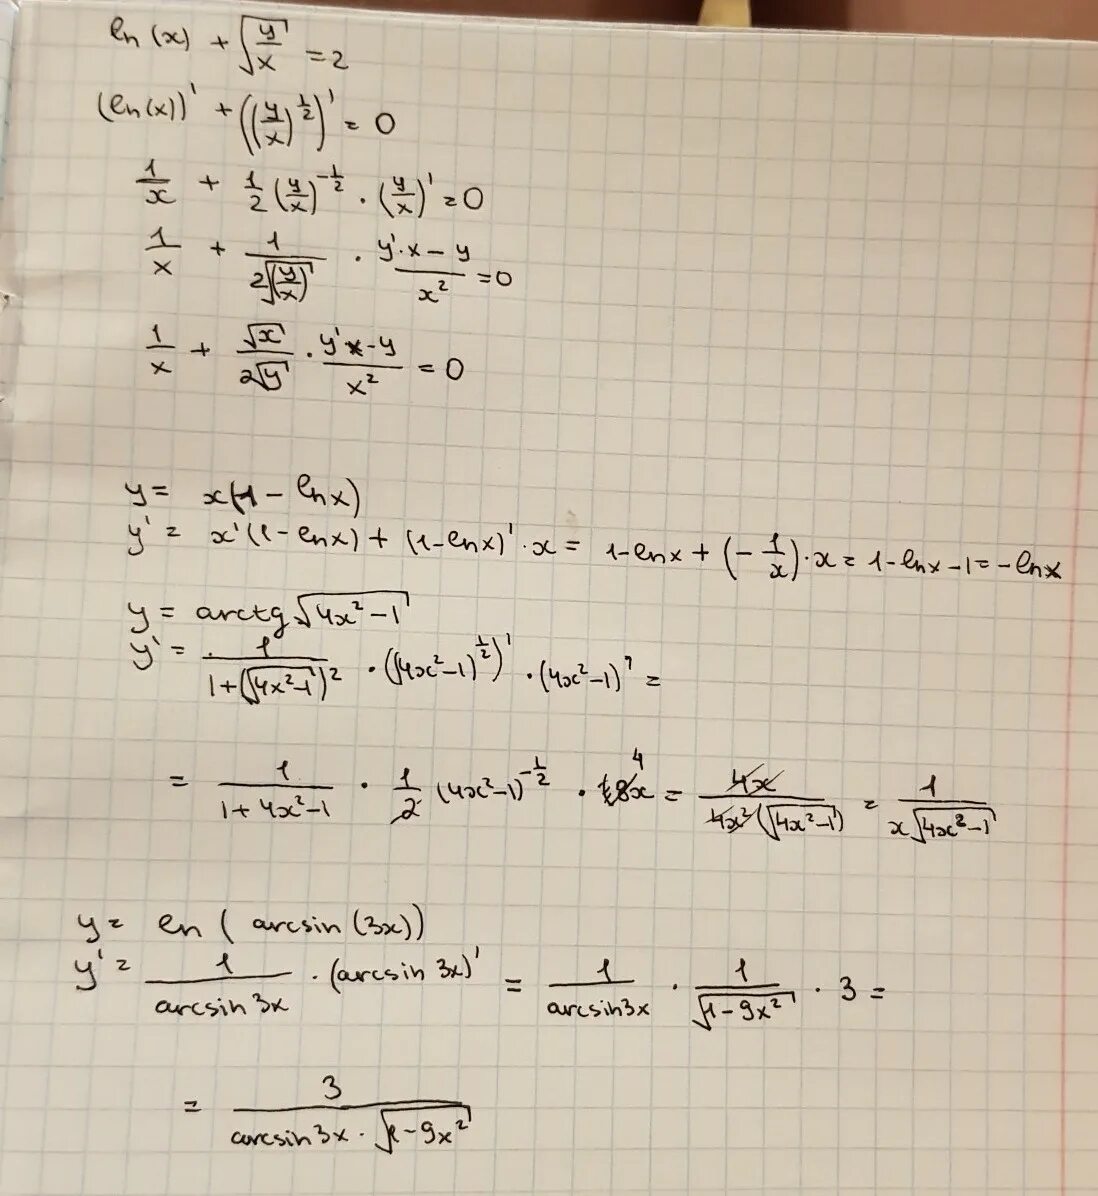 ln(x) + √(y/x) = 2
(ln(x))' + ((y/x)^(1/2))' = 0
1/x + 1/2 (y/x)^(-1/2) · (y/x)' = 0
1/x + 1/(2√(y/x)) · (y'·x − y)/x² = 0
1/x + √x/(2√y) · (y'x − y)/x² = 0
y = x(1 − lnx)
y' = x'(1−lnx) + (1−lnx)'·x = 1−lnx + (−1/x)·x = 1−lnx−1 = −lnx
y = arctg√(4x²−1)
y' = 1/(1+(√(4x²−1))²) · ((4x²−1)^(1/2))' · (4x²−1)' =
= 1/(1+4x²−1) · 1/2 (4x²−1)^(-1/2) · 8x 4 = 4x/(4x²(√(4x²−1))) = 1/(x√(4x²−1))
y = ln(arcsin(3x))
y' = 1/(arcsin3x) · (arcsin 3x)' = 1/(arcsin3x) · 1/√(1−9x²) · 3 =
= 3/(arcsin3x · √(1−9x²))